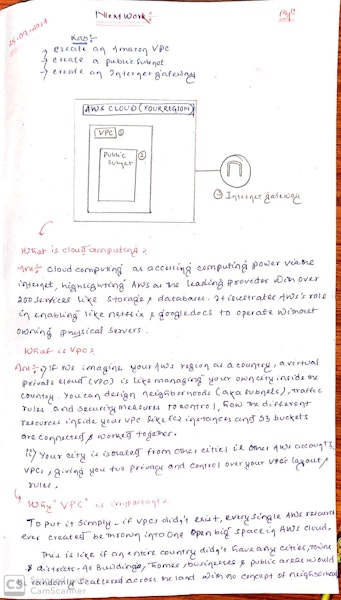 NextWork:-
25-09-2024
Lab:-
→ create an Amazon VPC
→ create a public subnet
→ create an Internet gateway
AWS CLOUD (YOUR REGION)
VPC ①
Public
Subnet
②
③ Internet gateway
What is cloud computing?
Ans:- Cloud computing as accessing computing power via the
internet, highlighting AWS as the leading provider with over
200 services like storage & database. It illustrates AWS's role
in enabling like netflix & google docs to operate without
owning physical servers.
What is VPC?
Ans:- i) If we imagine your AWS region as a country, a virtual
private cloud (VPC) is like managing your own city inside the
country. You can design neighborhoods (aka subnets), traffic
rules and security measures to control, how the different
resources inside your VPC like EC2 instances and S3 buckets
are connected & worked together.
ii) Your city is isolated from other cities ie other AWS account's
VPCs, giving you full privacy and control over your VPC's layout &
rules.
Why "VPC" is important:-
To put it simply - if VPCs didn't exist, every single AWS resource
ever created be thrown into one open big space in AWS cloud.
This is like if an entire country didn't have any cities, towns
& districts. All Buildings, homes, businesses & public areas would
be randomly scattered across the land with no concept of neighborhood
CS
CamScanner